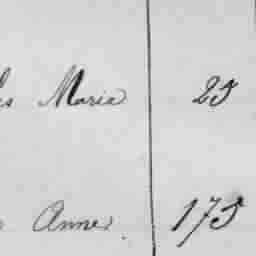 Maria 25
Anne. 175